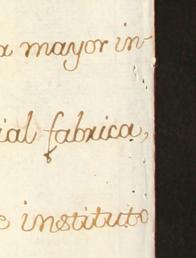 a mayor in-
ial fabrica,
e instituto